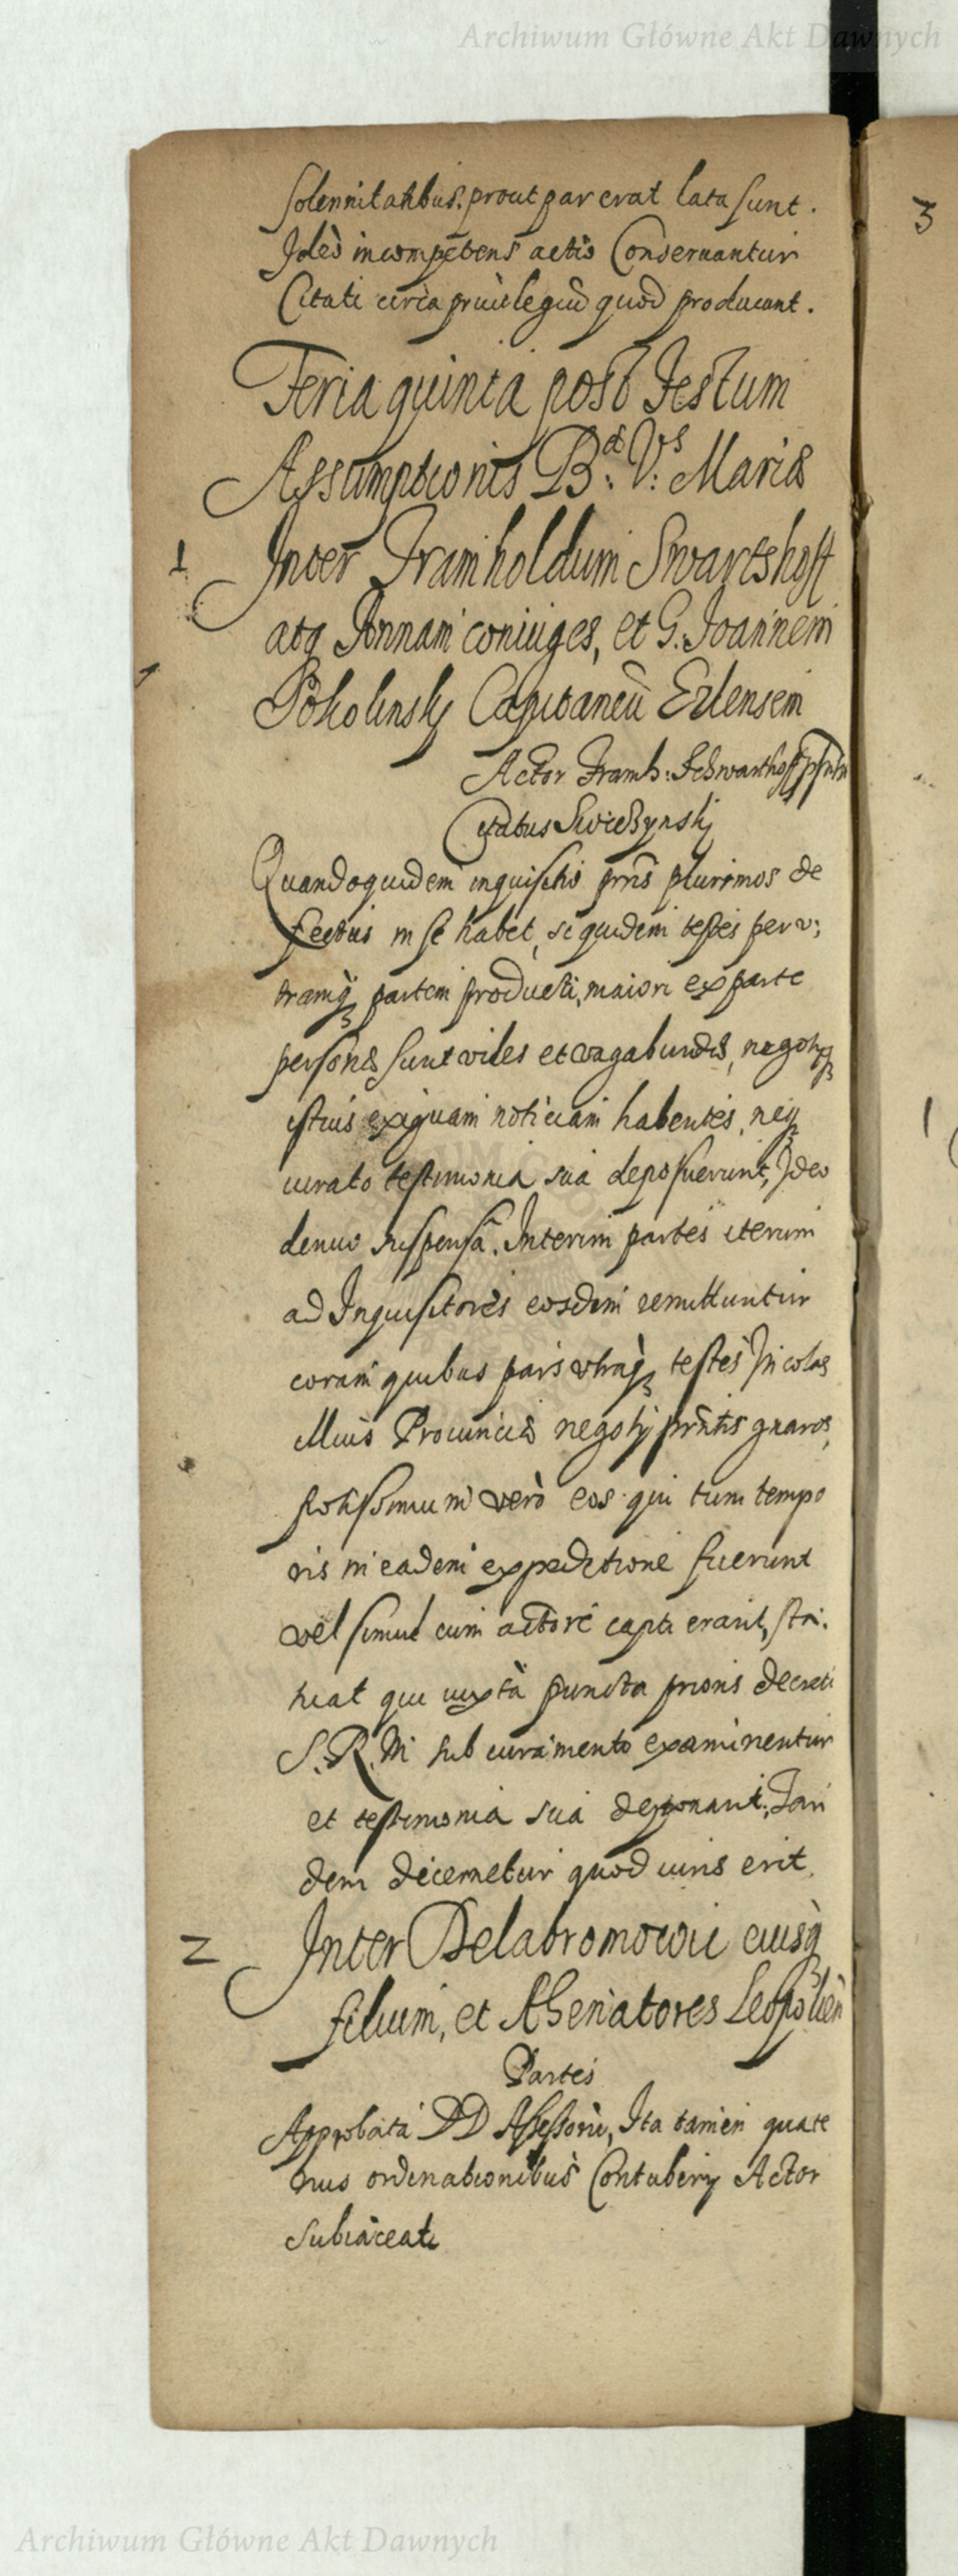 Archiwum Główne Akt Dawnych
solennitatibus prout par erat lata sunt.
Ideò incompetens actio Conseruantur
Citati circa priuilegiũ quod producunt.
3
Feria quinta post Festum
Assumptionis B: V: Mariæ
1 Inter Framholdum Swartshoff
atq Annam coniuges, et G. Joannem
Pokolinskÿ Capitaneũ Erlensem
Actor Framh: Schwarthoff
Citatus Swiezynskj
Quandoquidem inquisitio prñs plurimos de
fectus in se habet, siquidem testes per v;
tramq̃ partem producti, maiori ex parte
personæ sunt viles et vagabundæ, negotijq
istius exiguam noticiam habentes, neq
iurato testimonia sua deposuerunt, Ideo
denuo suspensã. Interim partes iterum
ad Inquisitores eosdem remittuntur
coram quibus pars vtraq̃ testes Incolas
illius Prouinciæ negotÿ prñtis gnaros,
potissimum verò eos qui tum tempo
ris in eadem expeditione fuerunt
vel simul cum actore capti erant,
1
qui iuxtà puncta prioris decreti
S. R. M sub iuramento examinentur
et testimonia sua deponant. Tan
dem decernetur quod iuris erit.
2 Inter eiusq̃
filium, et Leopolien
Partes
Approbata DD Assessorũ, Ita tamen quate
nus ordinationibus Contubernÿ Actor
subiaceat
Archiwum Główne Akt Dawnych